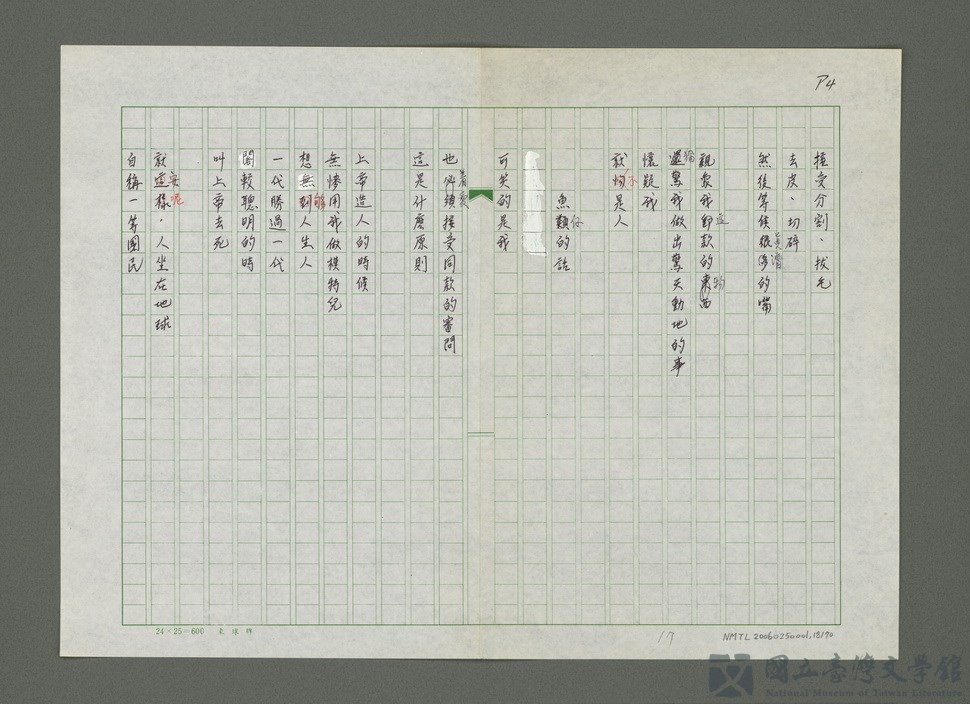 P4
接受分割、拔毛
去皮、切碎
然後等候很俢的嘴
親象我即款的東西
還罵我做出驚天動地的事
懷疑我
就怐是人
魚類的話
可笑的是我
也必須接受同款的審問
這是什麼原則
上帝造人的時候
無慘用我做模特兒
想無到人生人
一代勝過一代
閣較聰明的時
叫上帝去死
就這樣，人坐在地球
自稱一等國民
24×25=600
17
NMTL20060250001,18/70
國立臺灣文學館
National Museum of Taiwan Literature